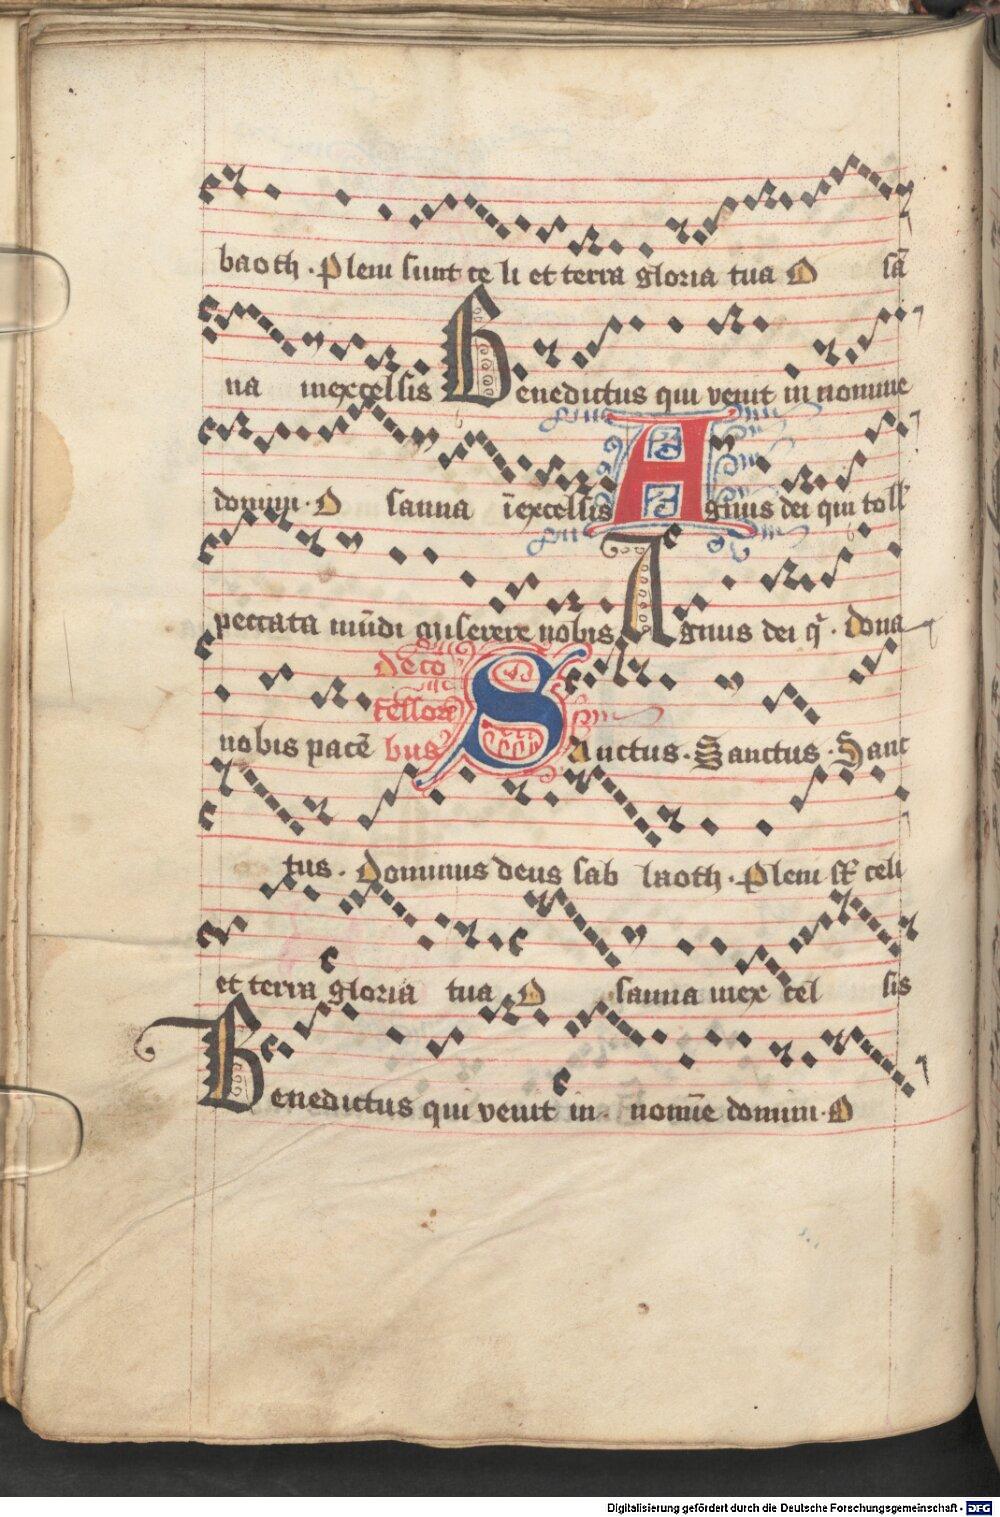 baoth . Pleni sunt ce li et terra gloria tua O sā
na inexcelsis Benedictus qui venit in nomine
domini . O sanna īexcelsis Agnus dei qui toll
peccata mūdi miserere nobis Agnus dei q̄ . dona
de cō
fessori
nobis pacē bus Sanctus . Sanctus . Sanc
tus . Dominus deus sab baoth . Pleni st̄ celi
et terra gloria tua O sanna inex cel sis
Benedictus qui venit in nomīe domini . O
Digitalisierung gefördert durch die Deutsche Forschungsgemeinschaft - DFG